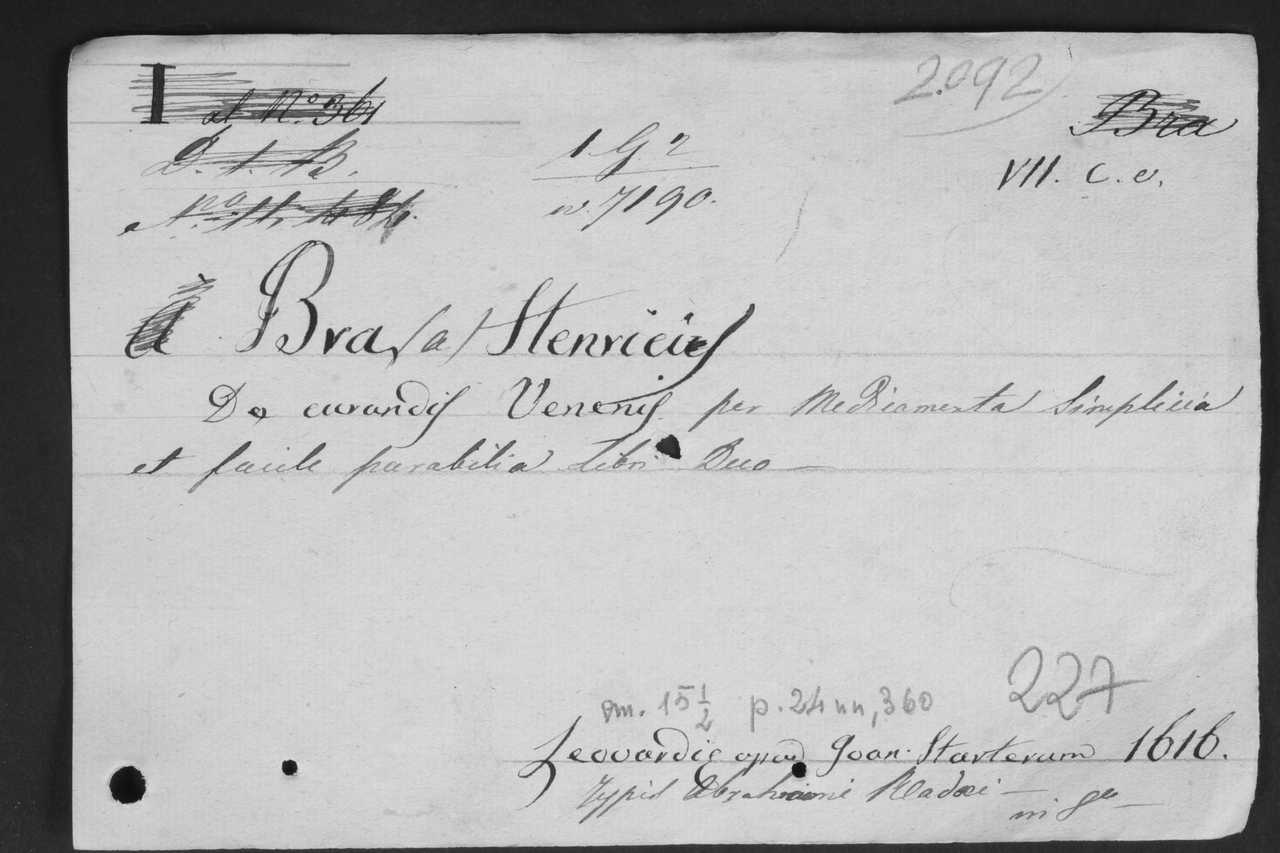 I al N.º 361 2.092 Bra
D. t. B. 1. G. 2 VII. C. e.
N.º 11. 484. n. 7190.
à Bra (a) Henricus
De curandis Venenis per Medicamenta Simplicia
et facile parabilia libri Duo —
227
cm. 15 1/2 p. 24 nn, 360
Leovardie apud Joan: Starterum 1616.
Typis Abrahami Radaei —
in 8º —